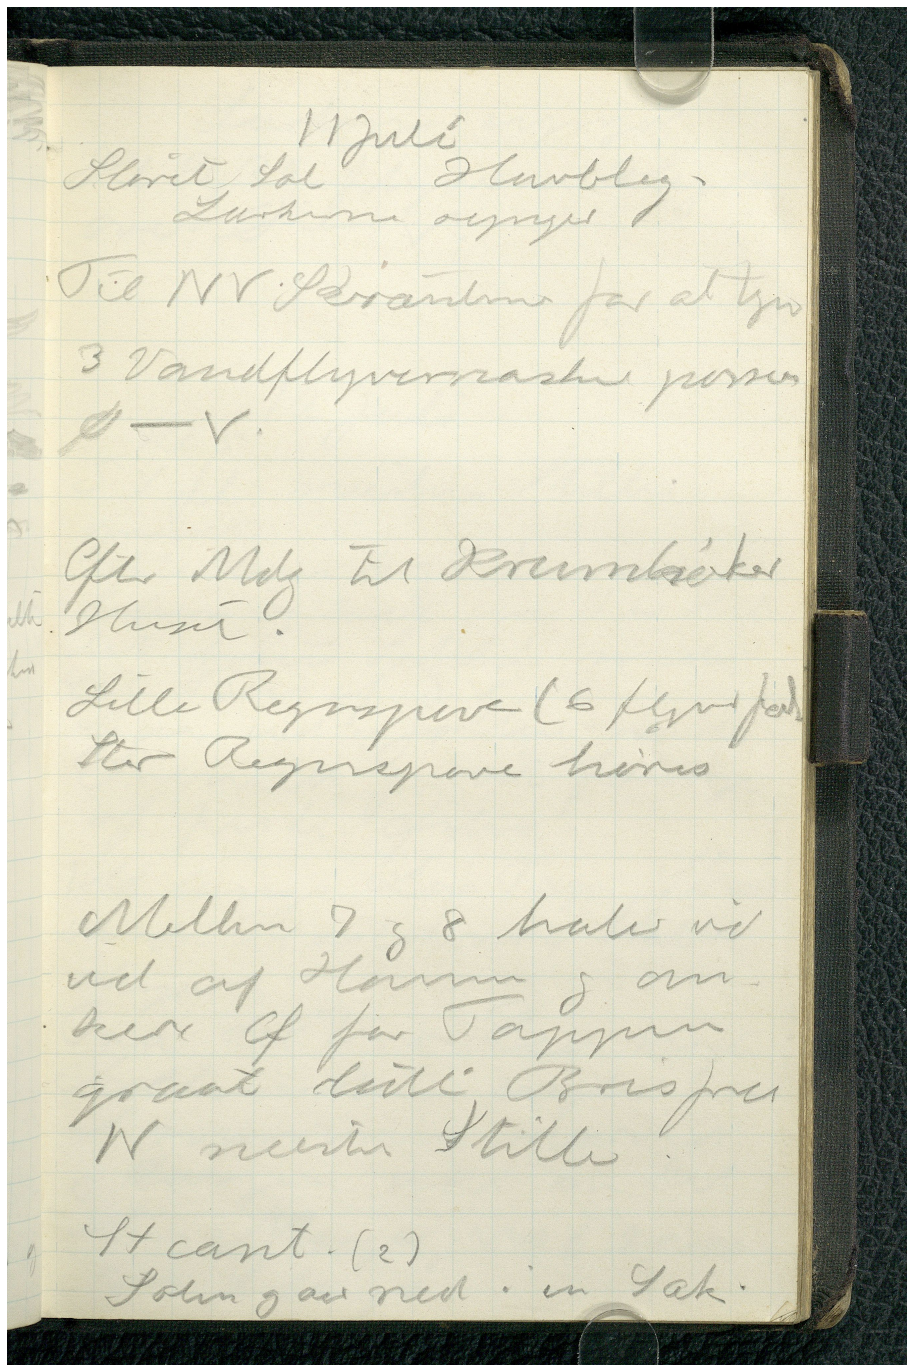 11 Juli
Skret Sol Havbleg.
Lærkerne synger
Til NV. Skrænterne for at
3 Vandflyvemaskiner passer
Ø — V.
Efter Mdg til
Huset.
Lille Regnspove (6 flyver
Stor Regnspove høres
Mellem 7 og 8 haler vi
ud af Havnen og an-
krer Ø for Tappen
graat lidt Bris fra
N næsten Stille.
St cant. (2)
Solen gaar ned i en Sæk.